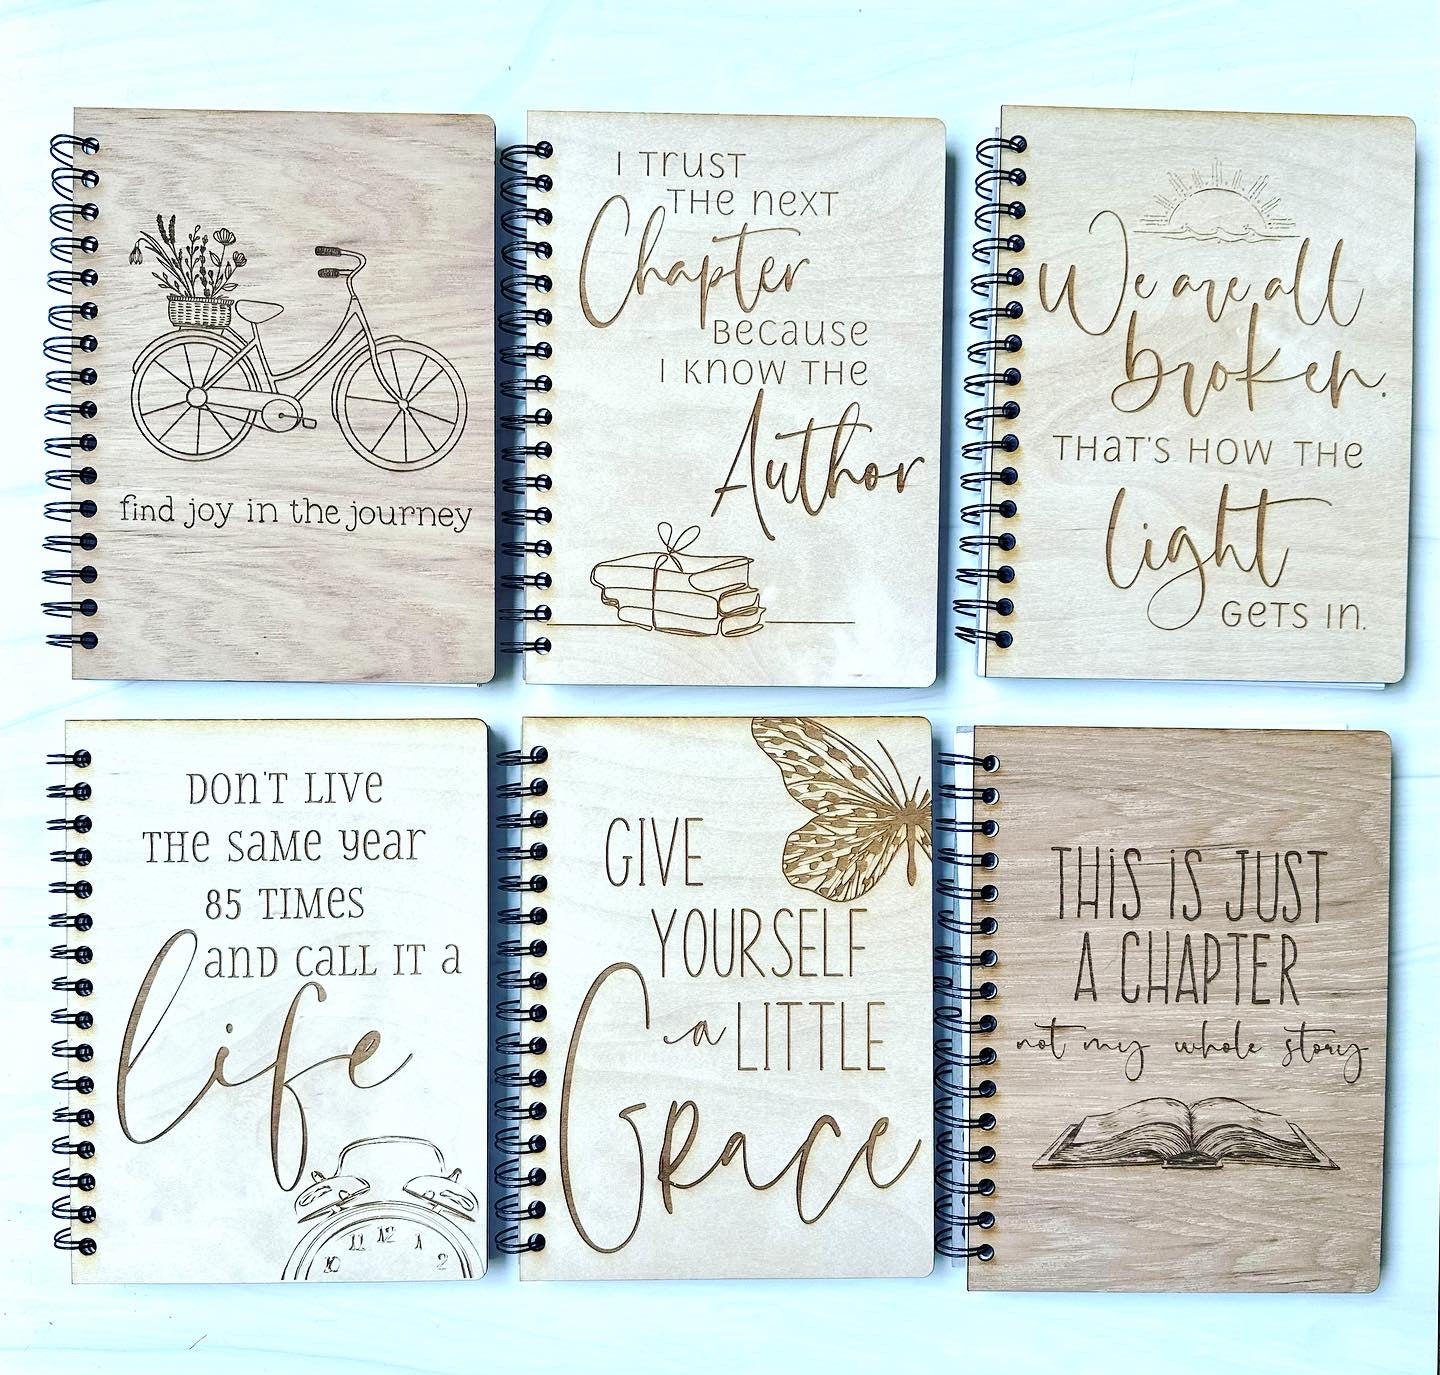 find joy in the journey
I TRUST
THE NEXT
Chapter
BECAUSE
I KNOW THE
Author
We are all
broken.
THAT'S HOW THE
light
GETS IN.
DON'T LIVE
THE SAME YEAR
85 TIMES
AND CALL IT A
life
10 11 12 1 2
GIVE
YOURSELF
a LITTLE
Grace
THIS IS JUST
A CHAPTER
not my whole story